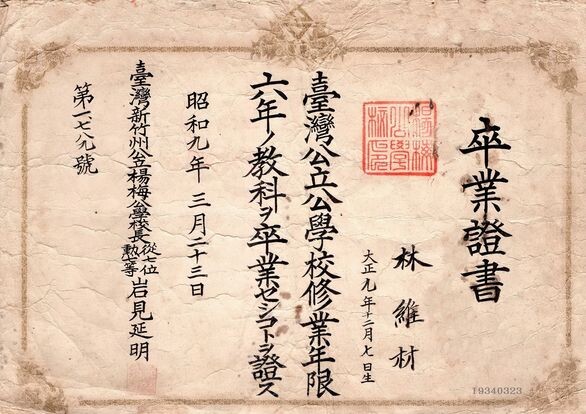 卒業證書
林維材
大正元年十二月七日生
臺灣公立公學校修業年限
六年ノ教科ヲ卒業セシコトヲ證ス
昭和九年三月二十三日
臺灣新竹州公立楊梅公學校長從七位勲七等岩見延明
第一七八九號
楊梅公學校印
19340323